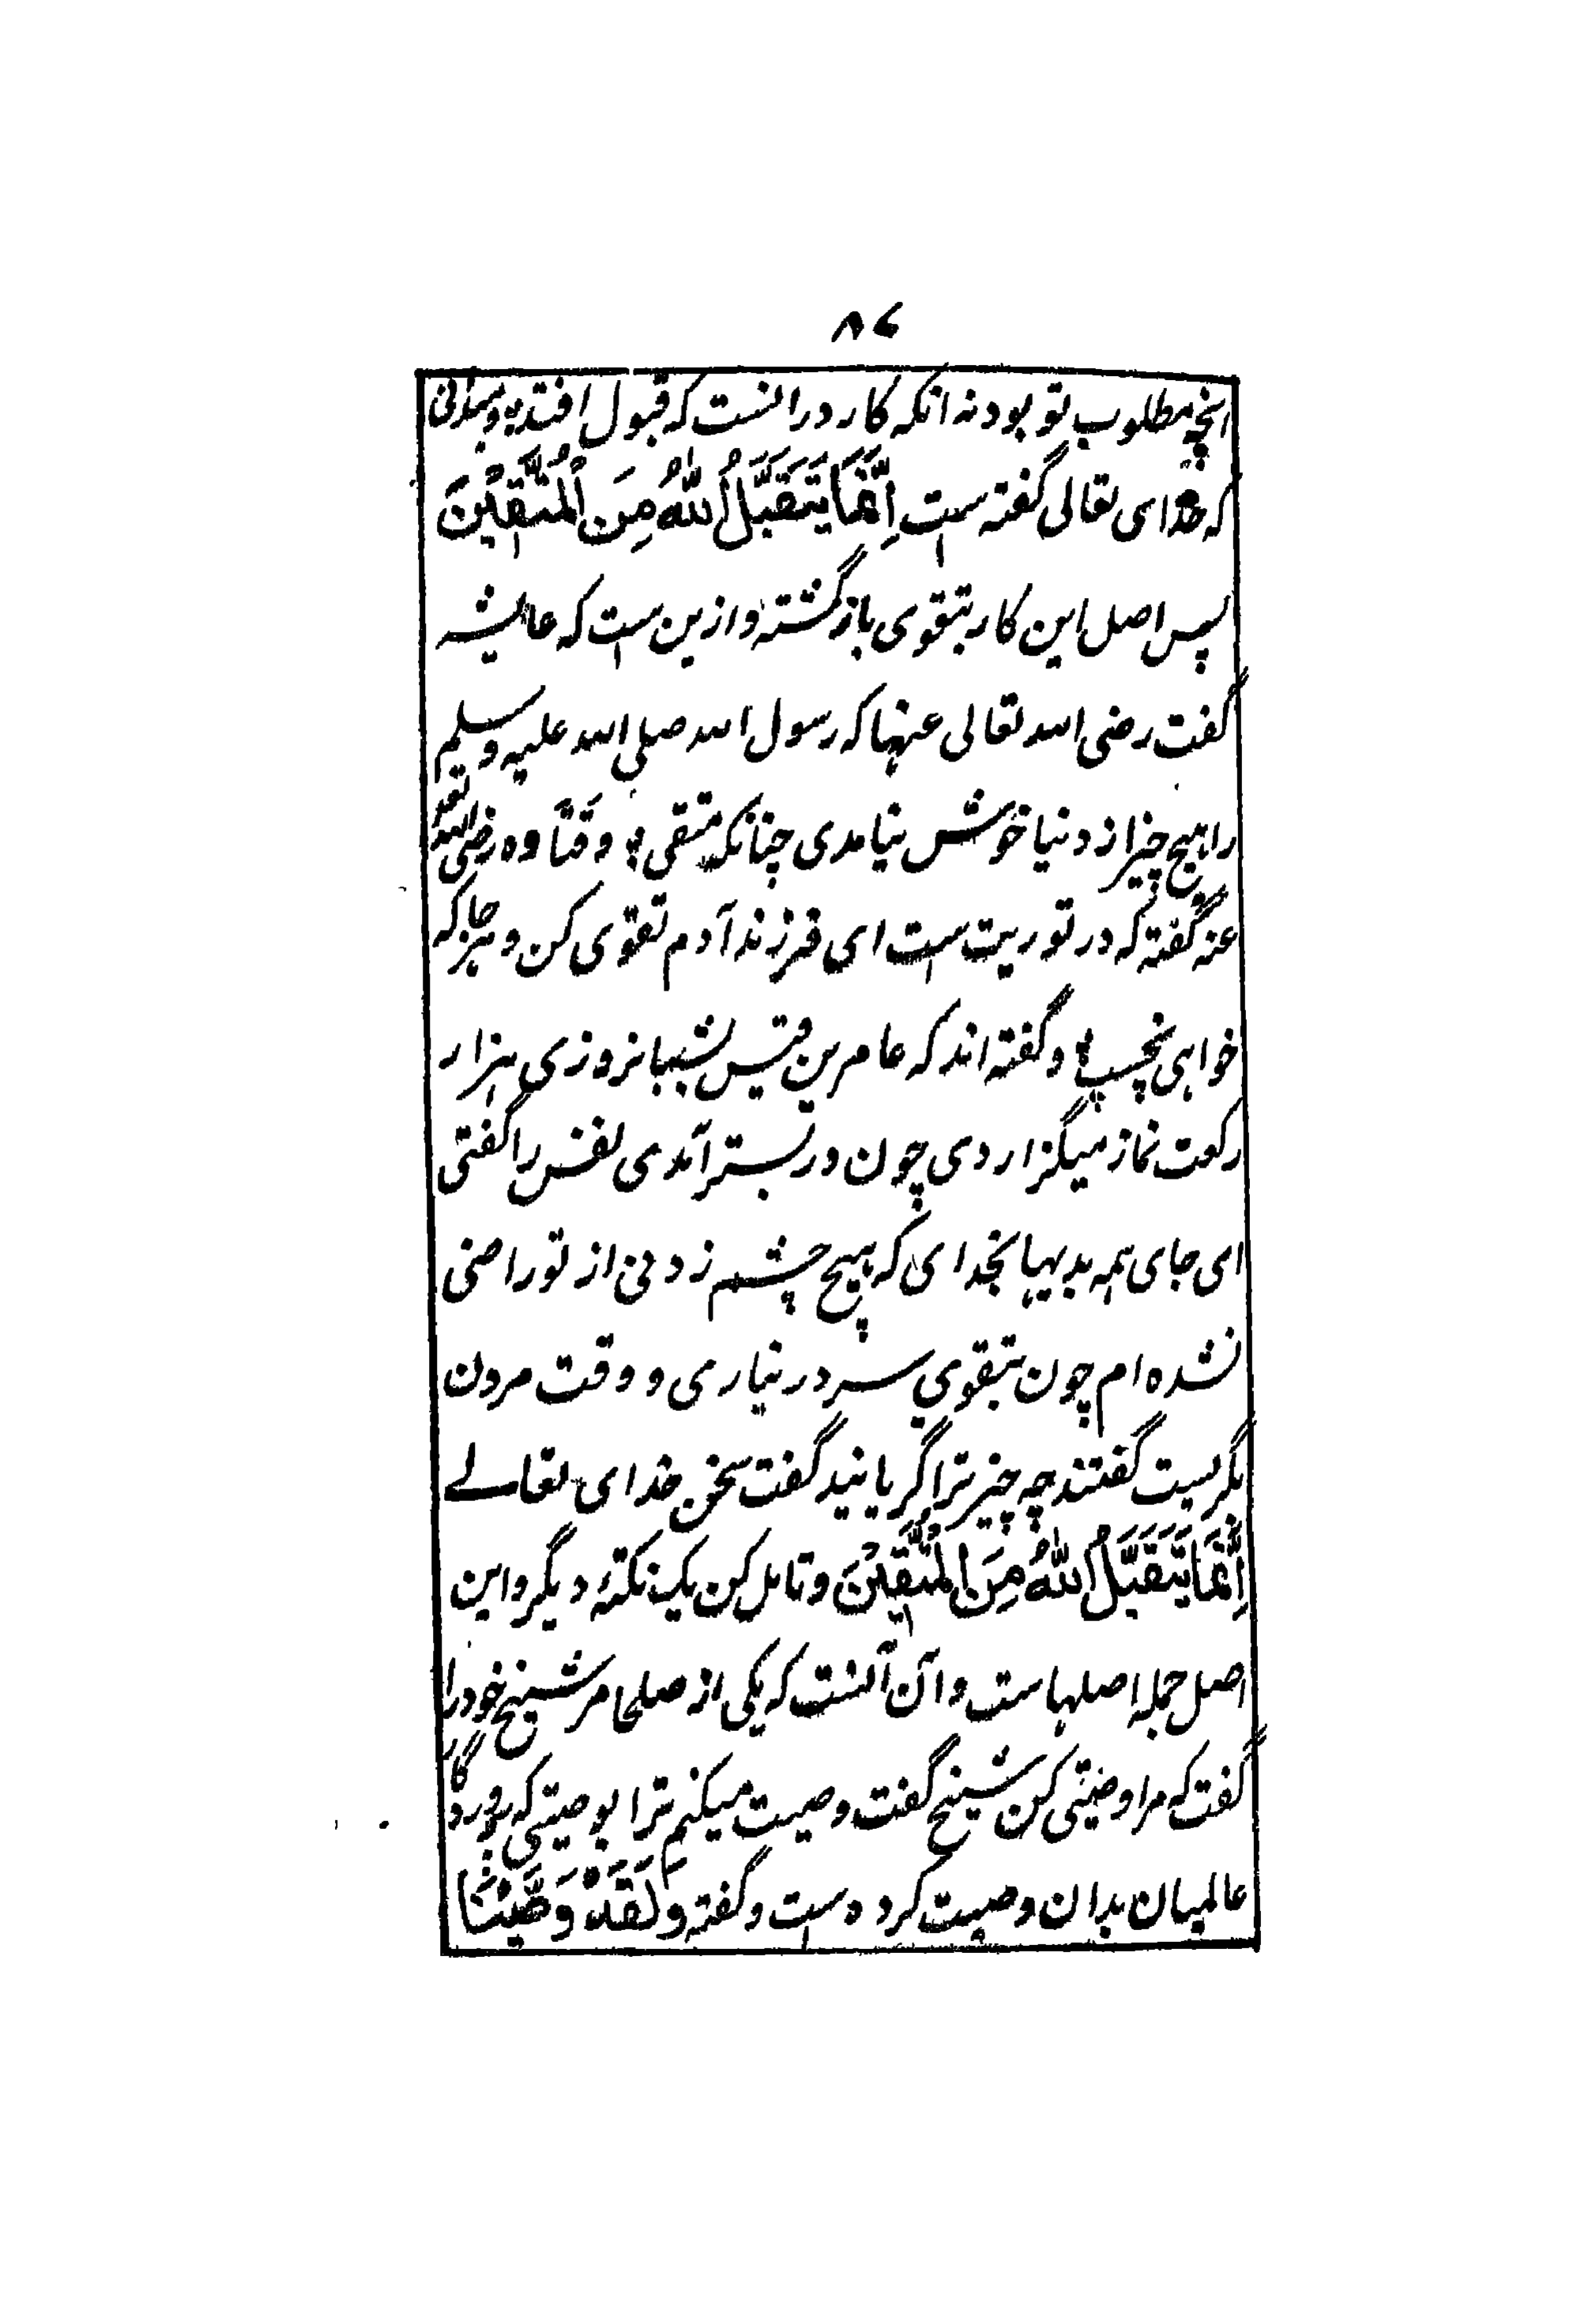 ۸۷
انچه مطلوب تو بود نه انکه کار در انست که قبول افتد
که خدای تعالی گفته ست اِنَّمَا یَتَقَبَّلُ اللّٰهُ مِنَ الْمُتَّقِیْنَ
پس اصل این کار بتقوی بازگشته و ازین ست که عایشه
گفت رضی الله تعالی عنها که رسول الله صلی الله علیه وسلم
را هیچ چیز از دنیا خوش نیامدی چنانکه متقی؛ و قتاده رضی الله تعه
عنه گفته که در توریت ست ای فرزند آدم تقوی کن و هر جا که
خواهی بخسپ؛ و گفته اند که عامر بن قیس شبانروزی هزار
رکعت نماز میگزاردی چون در بستر آمدی نفس را گفتی
ای جای همه بدیها بخدای که هیچ چشم زدنی از تو راضی
نشده ام چون بتقوی سر در نیاری و وقت مردن
بگریست گفتند چه چیز ترا گریانید گفت سخن خدای تعالے
اِنَّمَا یَتَقَبَّلُ اللّٰهُ مِنَ الْمُتَّقِیْنَ و تامل کن یک نکتهٔ دیگر و این
اصل جمله اصلهاست و آن آنست که یکی از صلحا مر شیخ خود را
گفت که مرا وصیتی کن شیخ گفت وصیت میکنم ترا بوصیتی که پروردگار
عالمیان بدان وصیت کرده ست و گفته وَلَقَدْ وَصَّیْنَا